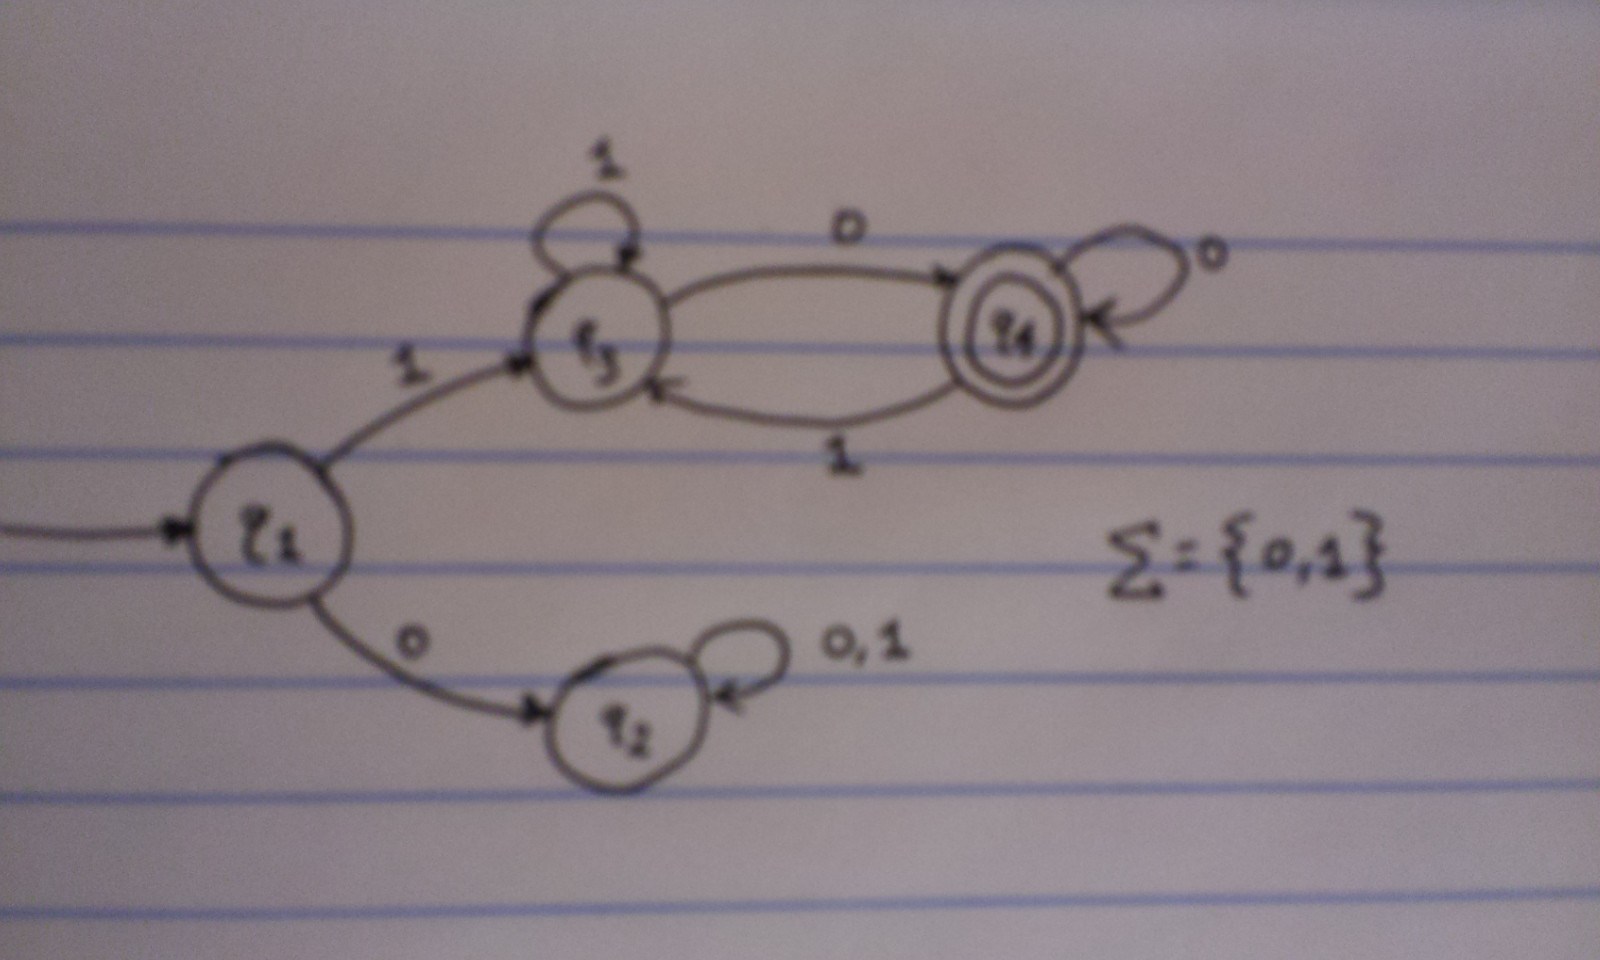 1
0
0
q3
q4
1
1
q1
Σ = {0,1}
0
0,1
q2